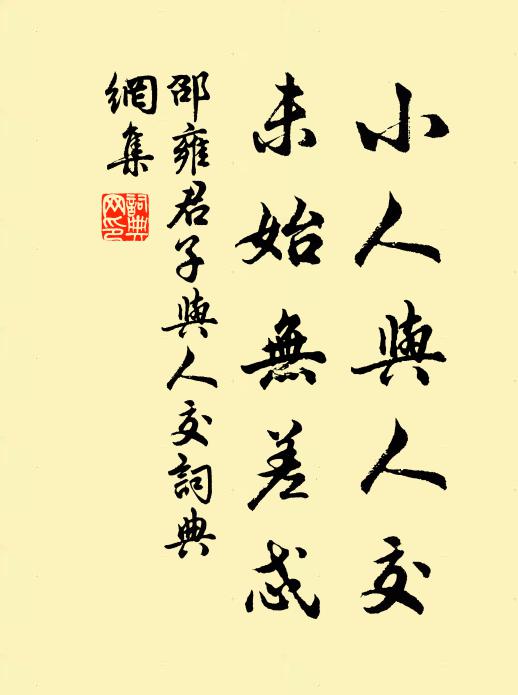 小人與人交
未始無差忒
邵雍君子與人交詞典
網集
詞典
网印